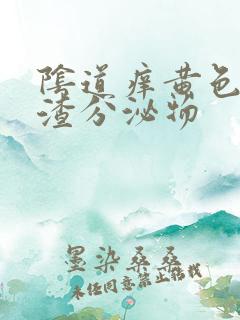 陰道痒黄色
渣分泌物
墨染桑桑
未经同意禁止搭载